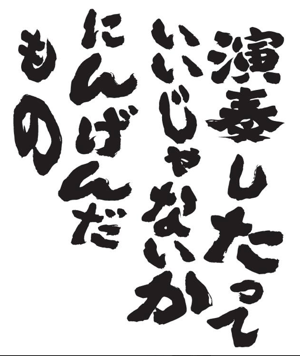 演奏したって
いいじゃないか
にんげんだ
もの